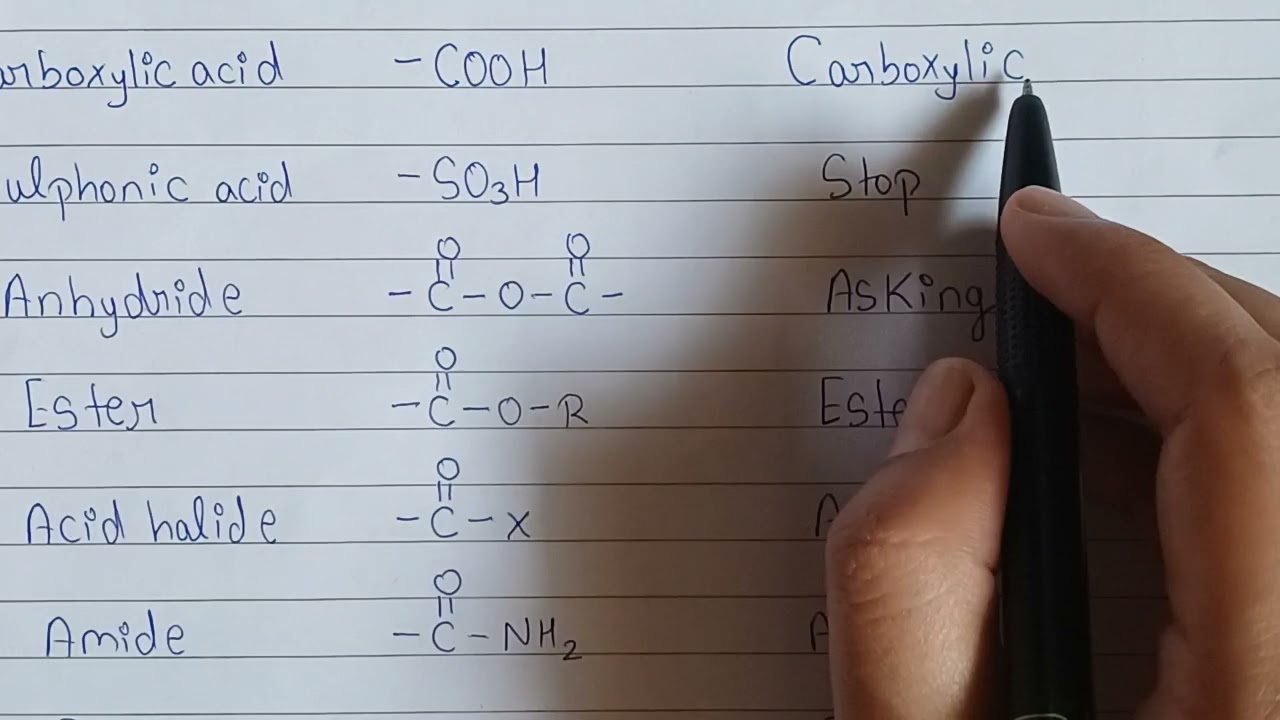 arboxylic acid -COOH Carboxylic
ulphonic acid -SO₃H Stop
O O
Anhydride -C-O-C- Asking
O
Ester -C-O-R Este
O
Acid halide -C-X A
O
Amide -C-NH₂ A